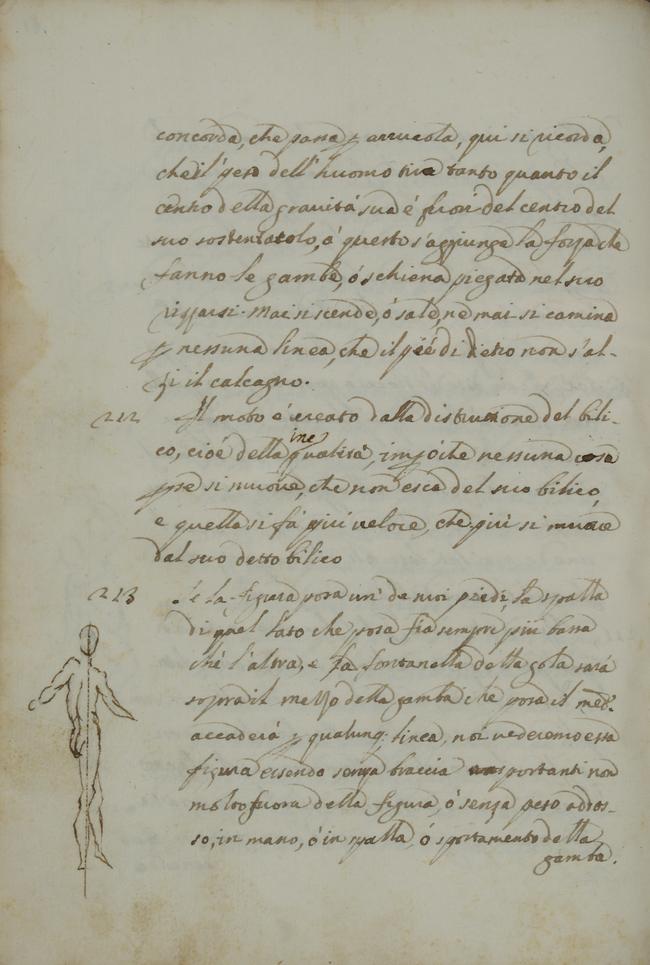 concorda, che passa p arrivcola, qui si ricorda,
che il peso dell'huomo tira tanto quanto il
centro della gravità sua è fuori del centro del
suo sostentacolo, à questo s'aggiunge la forza che
fanno le gambe, ò schiena piegata nel suo
rizzarsi. Mai si scende, ò sale, ne mai si camina
p nessuna linea, che il piè di dietro non s'al-
zi il calcagno.
212 Il moto è creato dalla distruzione del bili-
co, cioè della inequalità, impoche nessuna cosa
p se si muove, che non esca del suo bilico,
e quella si fà più veloce, che più si muove
dal suo detto bilico
213 Se la figura posa un de suoi piedi, la spalla
di quel lato che posa fia sempre più bassa
che l'altra, e la fontanella della gola sarà
sopra il mezzo della gamba che posa il med.º
accaderà p qualunq; linea, noi vederemo essa
figura essendo senza braccia sportanti non
molto fuora della figura, ò senza peso addos-
so, in mano, ò in spalla, ò sportamento della
gamba.